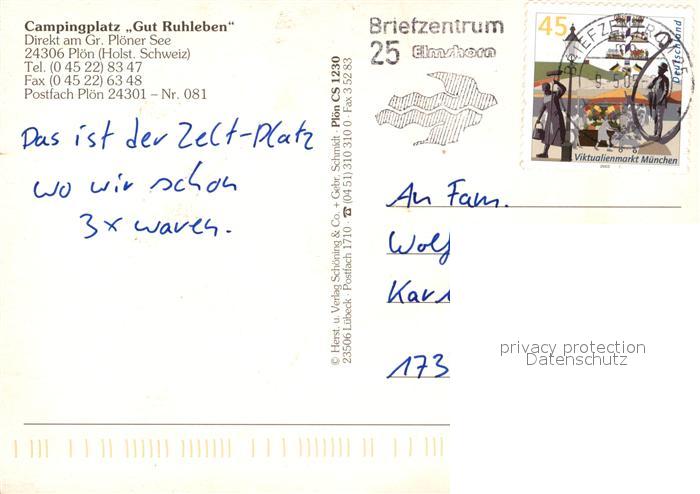 Campingplatz „Gut Ruhleben"
Direkt am Gr. Plöner See
24306 Plön (Holst. Schweiz)
Tel. (0 45 22) 83 47
Fax (0 45 22) 6 3 48
Postfach Plön 24301 – Nr. 081
Das ist der Zelt-Platz
wo wir schon
3x waren.
© Herst. u. Verlag Schöning & Co. + Gebr. Schmidt · Plön CS 1230
23506 Lübeck · Postfach 1710 · ☎ (04 51) 310 310 0 · Fax 3 52 83
Briefzentrum
25 Elmshorn
45
Deutschland
Viktualienmarkt München
BRIEFZENTRUM
An Fam.
Wolf
Kar
173
privacy protection
Datenschutz